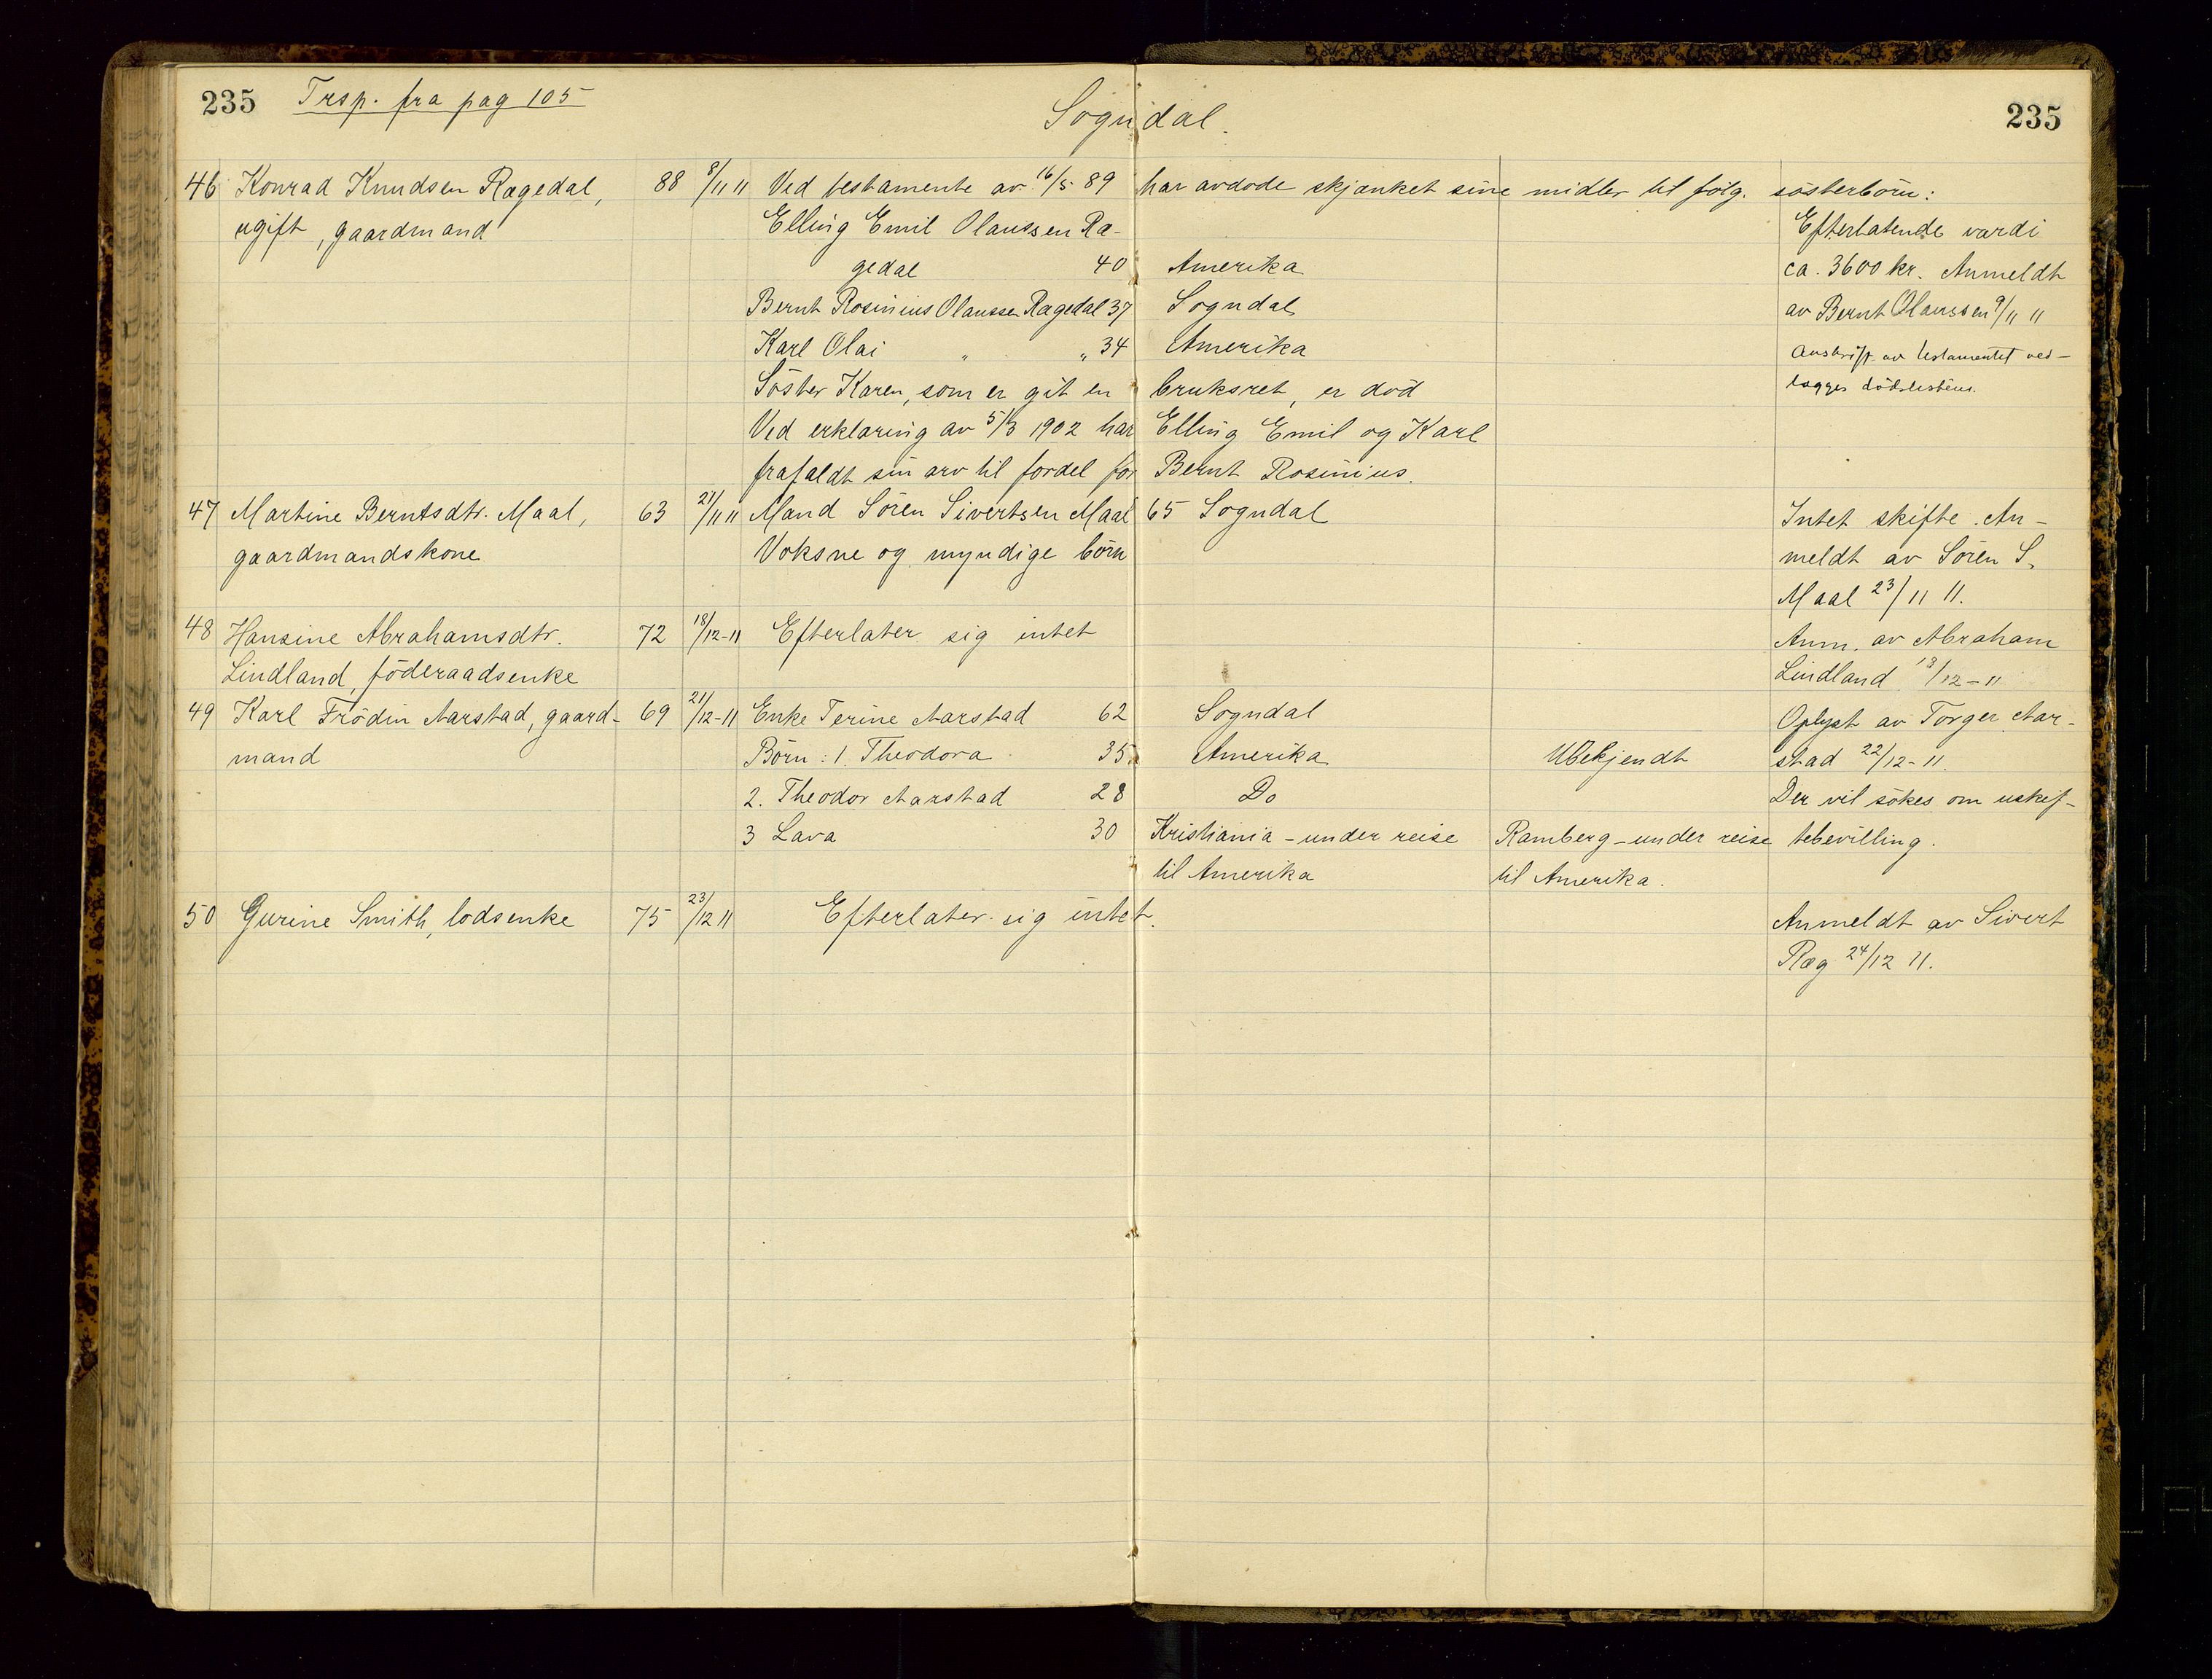 235 Trsp. fra pag 105 Sogndal. 235
46 Konrad Knudsen Rægedal, 88 8/11 11 Ved testamente av 16/5 89 har avdøde skjænket sine midler til følg. søsterbørn:
ugift, gaardmand Elling Emil Olaussen Ræ- Efterlatende værdi
gedal 40 Amerika ca. 3600 kr. Anmeldt
Bernt Rosinius Olaussen Rægedal 37 Sogndal av Bernt Olaussen 9/11 11
Karl Olai " " 34 Amerika Avskrift av testamentet ved-
Søster Karen, som er git en bruksret, er død lægges dødslisten.
Ved erklæring av 5/3 1902 har Elling Emil og Karl
frafaldt sin arv til fordel for Bernt Rosinius.
47 Martine Berntsdtr. Maal, 63 21/11 11 Mand Søren Sivertsen Maal 65 Sogndal Intet skifte. An-
gaardmandskone Voksne og myndige børn meldt av Søren S.
Maal 23/11 11.
48 Hansine Abrahamsdtr. 72 18/12-11 Efterlater sig intet Anm. av Abraham
Lindland, føderaadsenke Lindland 13/12-11
49 Karl Frödin Aarstad, gaard- 69 21/12-11 Enke Terine Aarstad 62 Sogndal Oplyst av Torger Aar-
mand Børn: 1. Theodora 35 Amerika Ubekjendt stad 22/12-11.
2. Theodor Aarstad 28 Do Der vil søkes om uskif-
3 Lava 30 Kristiania - under reise Ramberg - under reise tebevilling.
til Amerika til Amerika.
50 Gurine Smith, lodsenke 75 23/12 11 Efterlater sig intet. Anmeldt av Sivert
Ræg 24/12 11.